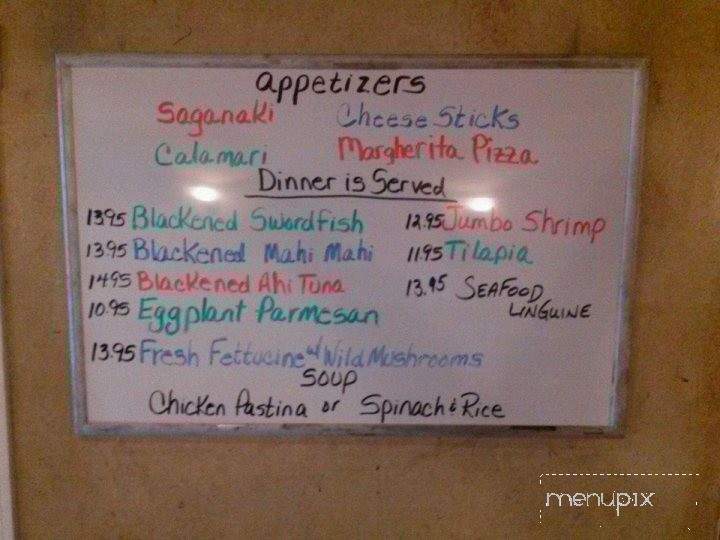 appetizers
Saganaki Cheese Sticks
Calamari Margherita Pizza
Dinner is Served
13.95 Blackened Swordfish 12.95 Jumbo Shrimp
13.95 Blackened Mahi Mahi 11.95 Tilapia
14.95 Blackened Ahi Tuna 13.95 SEAFOOD
LINGUINE
10.95 Eggplant Parmesan
13.95 Fresh Fettucine w/ Wild Mushrooms
SOUP
Chicken Pastina or Spinach & Rice
menupix